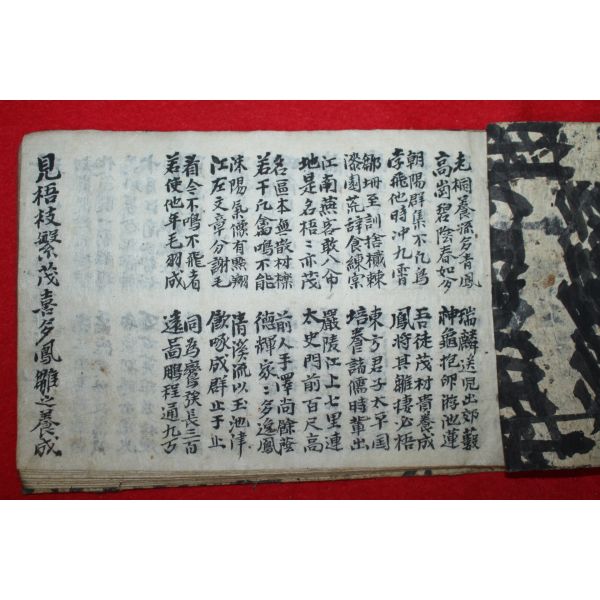 老桐養孫多青鳳 瑞麟送児出郊藪
高崗碧陰春如夕 神龜抱卵游池蓮
朝陽群集不凡鳥 吾徒茂材貴養成
李飛他時冲九霄 鳳將其雛捿必梧
鄒坶至訓捨樲棘 東方君子太平国
漆園荒辞食練实 培養諸儒時軰出
江南燕客敢八命 嚴陵江上七里連
地是名梧〻亦茂 太史門前百尺高
名區本無散材櫟 前人手澤尚餘蔭
若干凡禽鳴不能 德輝家〻多逸鳳
洙陽氣像有點翔 清溪流以玉池津
江左文章分謝毛 啄成群止于止
看今不鳴不飛者 同為黌強長三百
若使他年毛羽成 遠啚鵬程通九古
見梧枝繁茂喜多鳳雛之養成